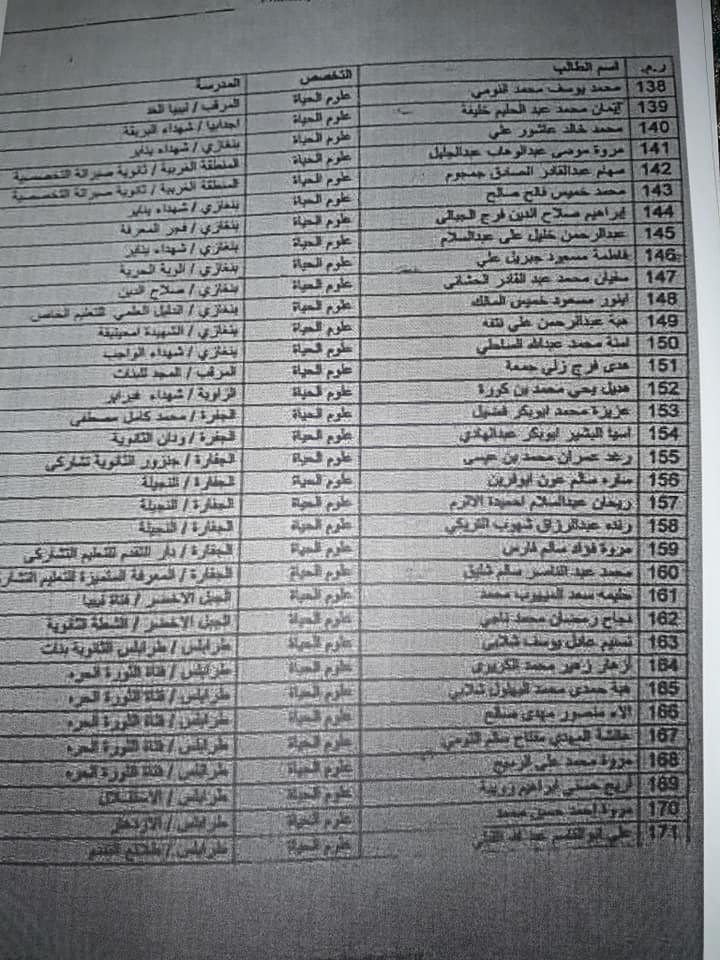 ر.م. اسم الطالب التخصص المدرسة
138 محمد يوسف محمد التومي علوم الحياة المرقب / ليبيا الغد
139 إيمان محمد عبد الحليم خليفة علوم الحياة اجدابيا / شهداء البريقة
140 محمد خالد عاشور علي علوم الحياة بنغازي / شهداء يناير
141 مروة موسى عبدالوهاب عبدالجليل علوم الحياة المنطقة الغربية / ثانوية صبراتة التخصصية
142 سهام عبدالقادر الصادق جمجوم علوم الحياة المنطقة الغربية / ثانوية صبراتة التخصصية
143 محمد خميس فالح صالح علوم الحياة بنغازي / شهداء يناير
144 إبراهيم صلاح الدين فرج الجبالي علوم الحياة بنغازي / فجر المعرفة
145 عبدالرحمن خليل على عبدالسلام علوم الحياة بنغازي / شهداء يناير
146 فاطمة مسعود جبريل علي علوم الحياة بنغازي / الحرية
147 سفيان محمد عبد القادر علوم الحياة بنغازي / صلاح الدين
148 مسعود خميس علوم الحياة بنغازي / الدليل العلمي التعليم الخاص
149 هبة عبدالرحمن علي علوم الحياة بنغازي / الشهيدة
150 امنة محمد عبدالله الساحلي علوم الحياة بنغازي / شهداء الواجب
151 هدى فرج جمعة علوم الحياة المرقب / المجد للبنات
152 هديل يحي محمد بن كورة علوم الحياة الزاوية / شهداء فبراير
153 عزيزة محمد ابوبكر فضيل علوم الحياة الجفرة / محمد كامل مصطفى
154 اسيا البشير ابوبكر عبدالهادي علوم الحياة الجفرة / ودان الثانوية
155 رغد عمران محمد بن عيسى علوم الحياة الجفارة / جنزور الثانوية تشاركي
156 ساره سالم عون ابوقرين علوم الحياة الجفارة / النجيلة
157 ريحان عبدالسلام احميدة الاترم علوم الحياة الجفارة / النجيلة
158 رنده عبدالرزاق شهوب التريكي علوم الحياة الجفارة / النجيلة
159 مروة فؤاد سالم فارس علوم الحياة الجفارة / دار التقدم للتعليم التشاركي
160 محمد عبد الناصر سالم علوم الحياة الجفارة / المعرفة المتميزة للتعليم التشار
161 حليمه سعد محمد علوم الحياة الجبل الاخضر / فتاة ليبيا
162 نجاح رمضان محمد ناجي علوم الحياة الجبل الاخضر / الشعلة الثانوية
163 تسنيم عادل يوسف شلابي علوم الحياة طرابلس / طرابلس الثانوية بنات
164 أزهار زهير محمد الكريوي علوم الحياة طرابلس / فتاة الثورة الحره
165 هبة حمدي محمد البهلول شلابي علوم الحياة طرابلس / فتاة الثورة الحره
166 الاء منصور مهدي صالح علوم الحياة طرابلس / فتاة الثورة الحره
167 عائشة المهدي مفتاح سالم التومي علوم الحياة طرابلس / فتاة الثورة الحره
168 مروة محمد علي الربيع علوم الحياة طرابلس / فتاة الثورة الحره
169 أريج حسني ابراهيم علوم الحياة طرابلس / الاستقلال
170 مروة احمد حسين محمد علوم الحياة طرابلس / الازدهار
171 علي ابوالقاسم عبد الله علوم الحياة طرابلس / طلائع النصر